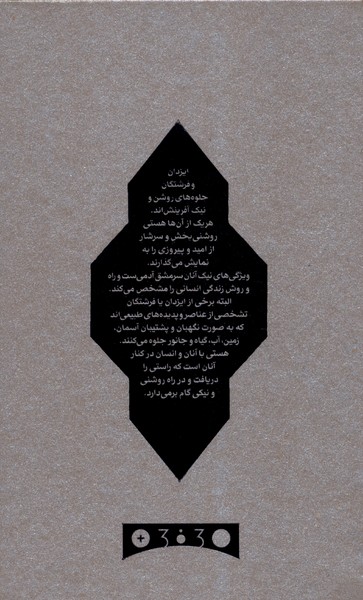 ایزدان
و فرشتگان
جلوه‌های روشن و
نیک آفرینش‌اند.
هریک از آن‌ها هستی
روشنی‌بخش و سرشار
از امید و پیروزی را به
نمایش می‌گذارند.
ویژگی‌های نیک آنان سرمشق آدمی‌ست و راه
و روش زندگی انسانی را مشخص می‌کند.
البته برخی از ایزدان یا فرشتگان
تشخصی از عناصر و پدیده‌های طبیعی‌اند
که به صورت نگهبان و پشتیبان آسمان،
زمین، آب، گیاه و جانور جلوه می‌کنند.
هستی با آنان و انسان در کنار
آنان است که راستی را
دریافت و در راه روشنی
و نیکی گام برمی‌دارد.